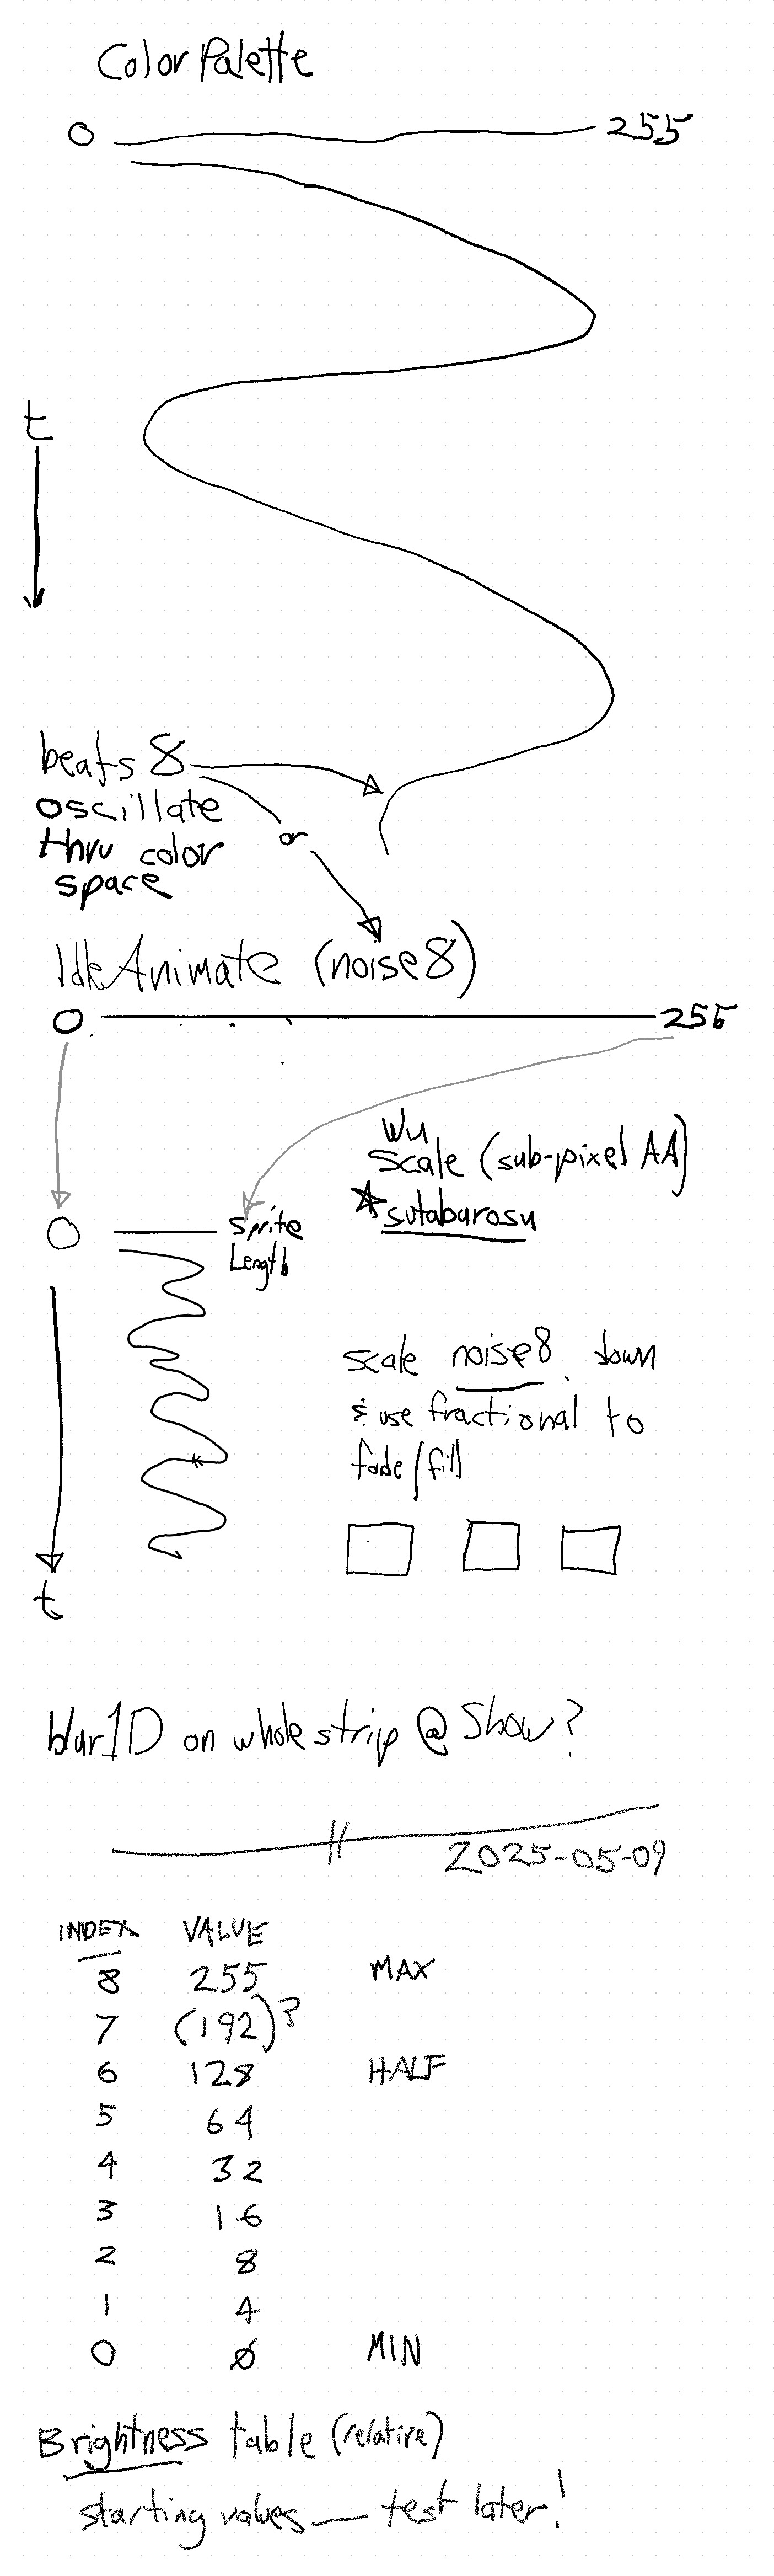 Color Palette
0 255
t
beats 8
oscillate
thru color
space
or
IdleAnimate (noise8)
0 255
Wu
scale (sub-pixel AA)
sutabarosu
0 Sprite
Length
scale noise8 down
& use fractional to
fade/fill
t
blur1D on whole strip @ Show?
2025-05-09
INDEX VALUE
8 255 MAX
7 (192)?
6 128 HALF
5 64
4 32
3 16
2 8
1 4
0 0 MIN
Brightness table (relative)
starting values — test later!